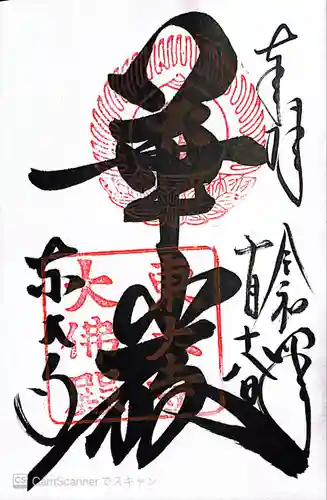 奉拝
令和四年
十月十八日
華厳
東大寺
東大寺
大佛殿
CS CamScanner でスキャン